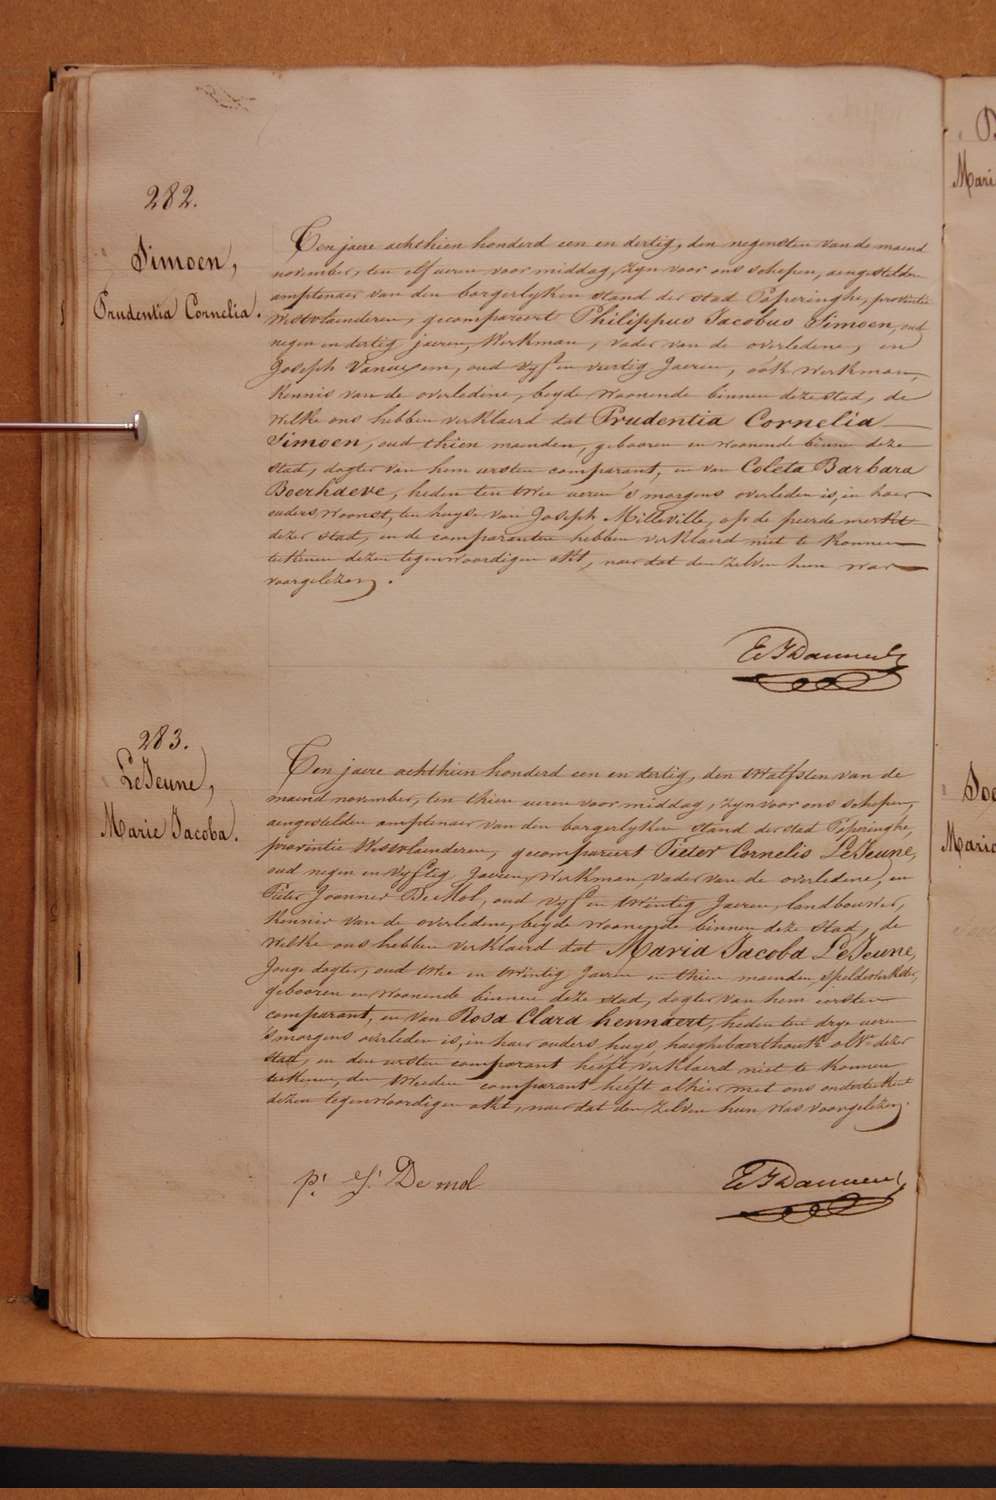 282.
Simoen,
Prudentia Cornelia.
Ten jaere achthien honderd een en dertig, den negensten van de maend
november, ten elf ueren voor middag, zyn voor ons schepen, aengestelden
amptenaer van den borgerlyken stand der stad Poperinghe, provintie
Westvlaenderen, gecompareert Philippus Jacobus Simoen, oud
negen en dertig jaeren, Werkman, vader van de overledene, en
Joseph, oud vyf en viertig Jaeren, oók werkman,
Kennis van de overledene, beyde woonende binnen deze stad, de
welke ons hebben verklaerd dat Prudentia Cornelia
Simoen, oud thien maenden, gebooren en woonende binnen deze
stad, dogter van hem eersten comparant, en van Coleta Barbara
Boerhaeve, heden ten twee ueren 's morgens overleden is, in haer
ouders woonst, ten huyse van Joseph Milleville, op de peerde merkt
dezer stad, en de comparanten hebben verklaerd niet te konnen
teekenen dezen tegenwoordigen akt, naer dat den zelven hun was
voorgelezen.
283.
LeJeune,
Marie Jacoba.
Ten jaere achthien honderd een en dertig, den twalfsten van de
maend november, ten thien ueren voor middag, zyn voor ons schepen,
aengestelden amptenaer van den borgerlyken stand der stad Poperinghe,
provintie Westvlaenderen, gecompareert Pieter Cornelis LeJeune,
oud negen en vyftig Jaeren, Werkman, vader van de overledene, en
Pieter Joannes De Mol, oud vyf en twintig Jaeren, landbouwer,
Kennis van de overledene, beyde woonende binnen deze stad, de
welke ons hebben verklaerd dat Maria Jacoba LeJeune,
Jonge dogter, oud twee en twintig Jaeren en thien maenden, speldewerkster,
gebooren en woonende binnen deze stad, dogter van hem eersten
comparant, en van Rosa Clara hennaert, heden ten drye ueren
'smorgens overleden is, in haer ouders huys, dezer
stad, en den eersten comparant heéft verklaerd niet te konnen
teekenen, den tweeden comparant heéft alhier met ons onderteekent
dezen tegenwoordigen akt, naer dat den zelven hun was voorgelezen.
pr. Js. De mol